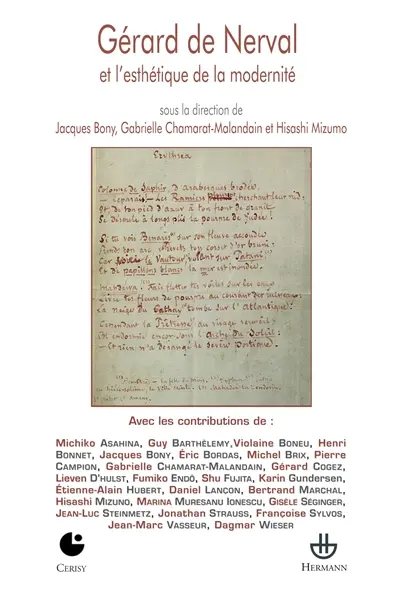 Gérard de Nerval
et l'esthétique de la modernité
sous la direction de
Jacques Bony, Gabrielle Chamarat-Malandain et Hisashi Mizumo
Erythrea
Colonne de Saphir, d'arabesques brodée,
– Reparais! – Les Ramiers cherchant leur nid:
Et, de ton pied d'azur à ton front de granit
Se déroule à longs plis la pourpre de Judée!
Si tu vois Bénarès sur son fleuve accoudée
Prends ton arc corset d'or bruni:
Car le Vautour, volant sur Patani
Et de papillons blancs la mer est inondée.
Mahdewa! Fais flotter tes voiles sur les eaux
Livre tes fleurs de pourpre au courant des ruisseaux:
La neige du Cathay tombe sur l'Atlantique:
Cependant la Prêtresse au visage vermeil
Est endormie encor sous l'Arche du Soleil:
– Et rien n'a dérangé le sévère portique.
Avec les contributions de :
Michiko Asahina, Guy Barthèlemy, Violaine Boneu, Henri
Bonnet, Jacques Bony, Éric Bordas, Michel Brix, Pierre
Campion, Gabrielle Chamarat-Malandain, Gérard Cogez,
Lieven D'hulst, Fumiko Endô, Shu Fujita, Karin Gundersen,
Étienne-Alain Hubert, Daniel Lançon, Bertrand Marchal,
Hisashi Mizuno, Marina Muresanu Ionescu, Gisèle Séginger,
Jean-Luc Steinmetz, Jonathan Strauss, Françoise Sylvos,
Jean-Marc Vasseur, Dagmar Wieser
Cerisy
Hermann